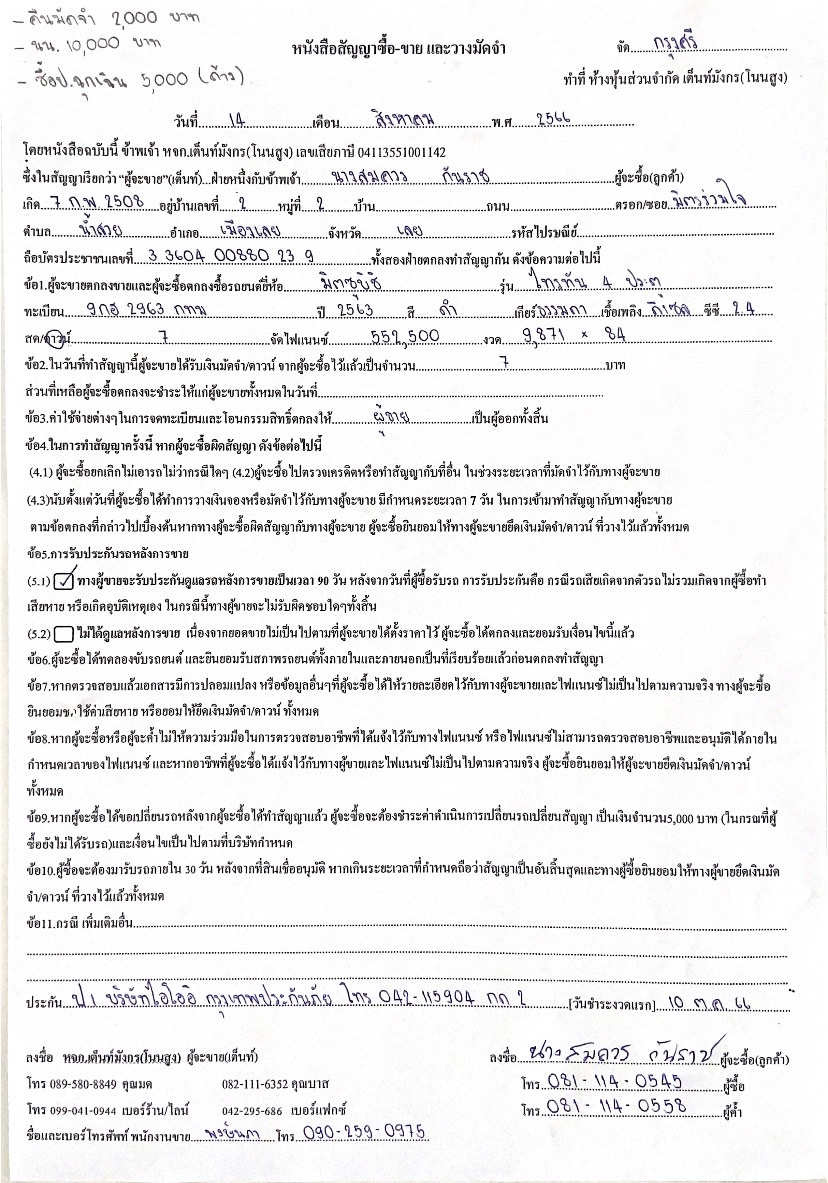 - คืนมัดจำ 2,000 บาท
- นน. 10,000 บาท
- ซื้อป.ฉุกเฉิน 5,000 (ค้าง)
หนังสือสัญญาซื้อ-ขาย และวางมัดจำ
จัด กรุงศรี
ทำที่ ห้างหุ้นส่วนจำกัด เต็นท์มังกร(โนนสูง)
วันที่ 14 เดือน สิงหาคม พ.ศ 2566
โดยหนังสือฉบับนี้ ข้าพเจ้า หจก.เต็นท์มังกร(โนนสูง) เลขเสียภาษี 04113551001142
ซึ่งในสัญญาเรียกว่า "ผู้จะขาย"(เต็นท์)...ฝ่ายหนึ่งกับข้าพเจ้า นางสมควร กันราช ผู้จะซื้อ(ลูกค้า)
เกิด 7 ก.พ. 2508 อยู่บ้านเลขที่ 2 หมู่ที่ 2 บ้าน ถนน ตรอก/ซอย มิตรร่วมใจ
ตำบล น้ำสวย อำเภอ เมืองเลย จังหวัด เลย รหัสไปรษณีย์
ถือบัตรประชาชนเลขที่ 3 3604 00880 23 9 ทั้งสองฝ่ายตกลงทำสัญญากัน ดังข้อความต่อไปนี้
ข้อ1.ผู้จะขายตกลงขายและผู้จะซื้อตกลงซื้อรถยนต์ยี่ห้อ มิตซูบิชิ รุ่น ไทรทัน 4 ประตู
ทะเบียน 9กฮ 2963 กทม ปี 2563 สี ดำ เกียร์ ธรรมดา เชื้อเพลิง ดีเซล ซีซี 2.4
สด/ดาวน์ 7 จัดไฟแนนซ์ 552,500 งวด 9,871 × 84
ข้อ2.ในวันที่ทำสัญญานี้ผู้จะขายได้รับเงินมัดจำ/ดาวน์ จากผู้จะซื้อไว้แล้วเป็นจำนวน 7 บาท
ส่วนที่เหลือผู้จะซื้อตกลงจะชำระให้แก่ผู้จะขายทั้งหมดในวันที่
ข้อ3.ค่าใช้จ่ายต่างๆในการจดทะเบียนและโอนกรรมสิทธิ์ตกลงให้ ผู้ขาย เป็นผู้ออกทั้งสิ้น
ข้อ4.ในการทำสัญญาครั้งนี้ หากผู้จะซื้อผิดสัญญา ดังข้อต่อไปนี้
(4.1) ผู้จะซื้อยกเลิกไม่เอารถไม่ว่ากรณีใดๆ (4.2)ผู้จะซื้อไปตรวจเครดิตหรือทำสัญญากับที่อื่น ในช่วงระยะเวลาที่มัดจำไว้กับทางผู้จะขาย
(4.3)นับตั้งแต่วันที่ผู้จะซื้อได้ทำการวางเงินจองหรือมัดจำไว้กับทางผู้จะขาย มีกำหนดระยะเวลา 7 วัน ในการเข้ามาทำสัญญากับทางผู้จะขาย
ตามข้อตกลงที่กล่าวไปเบื้องต้นหากทางผู้จะซื้อผิดสัญญากับทางผู้จะขาย ผู้จะซื้อยินยอมให้ทางผู้จะขายยึดเงินมัดจำ/ดาวน์ ที่วางไว้แล้วทั้งหมด
ข้อ5.การรับประกันรถหลังการขาย
(5.1) ทางผู้ขายจะรับประกันดูแลรถหลังการขายเป็นเวลา 90 วัน หลังจากวันที่ผู้ซื้อรับรถ การรับประกันคือ กรณีรถเสียเกิดจากตัวรถไม่รวมเกิดจากผู้ซื้อทำ
เสียหาย หรือเกิดอุบัติเหตุเอง ในกรณีนี้ทางผู้ขายจะไม่รับผิดชอบใดๆทั้งสิ้น
(5.2) ไม่ได้ดูแลหลังการขาย เนื่องจากยอดขายไม่เป็นไปตามที่ผู้จะขายได้ตั้งราคาไว้ ผู้จะซื้อได้ตกลงและยอมรับเงื่อนไขนี้แล้ว
ข้อ6.ผู้จะซื้อได้ทดลองขับรถยนต์ และยินยอมรับสภาพรถยนต์ทั้งภายในและภายนอกเป็นที่เรียบร้อยแล้วก่อนตกลงทำสัญญา
ข้อ7.หากตรวจสอบแล้วเอกสารมีการปลอมแปลง หรือข้อมูลอื่นๆที่ผู้จะซื้อได้ให้รายละเอียดไว้กับทางผู้จะขายและไฟแนนซ์ไม่เป็นไปตามความจริง ทางผู้จะซื้อ
ยินยอมชดใช้ค่าเสียหาย หรือยอมให้ยึดเงินมัดจำ/ดาวน์ ทั้งหมด
ข้อ8.หากผู้จะซื้อหรือผู้จะค้ำไม่ให้ความร่วมมือในการตรวจสอบอาชีพที่ได้แจ้งไว้กับทางไฟแนนซ์ หรือไฟแนนซ์ไม่สามารถตรวจสอบอาชีพและอนุมัติได้ภายใน
กำหนดเวลาของไฟแนนซ์ และหากอาชีพที่ผู้จะซื้อได้แจ้งไว้กับทางผู้ขายและไฟแนนซ์ไม่เป็นไปตามความจริง ผู้จะซื้อยินยอมให้ผู้จะขายยึดเงินมัดจำ/ดาวน์
ทั้งหมด
ข้อ9.หากผู้จะซื้อได้ขอเปลี่ยนรถหลังจากผู้จะซื้อได้ทำสัญญาแล้ว ผู้จะซื้อจะต้องชำระค่าดำเนินการเปลี่ยนรถเปลี่ยนสัญญา เป็นเงินจำนวน5,000 บาท (ในกรณที่ผู้
ซื้อยังไม่ได้รับรถ)และเงื่อนไขเป็นไปตามที่บริษัทกำหนด
ข้อ10.ผู้ซื้อจะต้องมารับรถภายใน 30 วัน หลังจากที่สินเชื่ออนุมัติ หากเกินระยะเวลาที่กำหนดถือว่าสัญญาเป็นอันสิ้นสุดและทางผู้ซื้อยินยอมให้ทางผู้ขายยึดเงินมัด
จำ/ดาวน์ ที่วางไว้แล้วทั้งหมด
ข้อ11.กรณี เพิ่มเติมอื่น
ประกัน ป.1 บริษัทไอโออิ กรุงเทพประกันภัย โทร 042-115904 กด 2 [วันชำระงวดแรก] 10 ต.ค. 66
ลงชื่อ หจก.เต็นท์มังกร(โนนสูง) ผู้จะขาย(เต็นท์)
ลงชื่อ นางสมควร กันราช ผู้จะซื้อ(ลูกค้า)
โทร 089-580-8849 คุณมด 082-111-6352 คุณบาส
โทร 081-114-0545 ผู้ซื้อ
โทร 099-041-0944 เบอร์ร้าน/ไลน์ 042-295-686 เบอร์แฟกซ์
โทร 081-114-0558 ผู้ค้ำ
ชื่อและเบอร์โทรศัพท์ พนักงานขาย โทร 090-259-0975